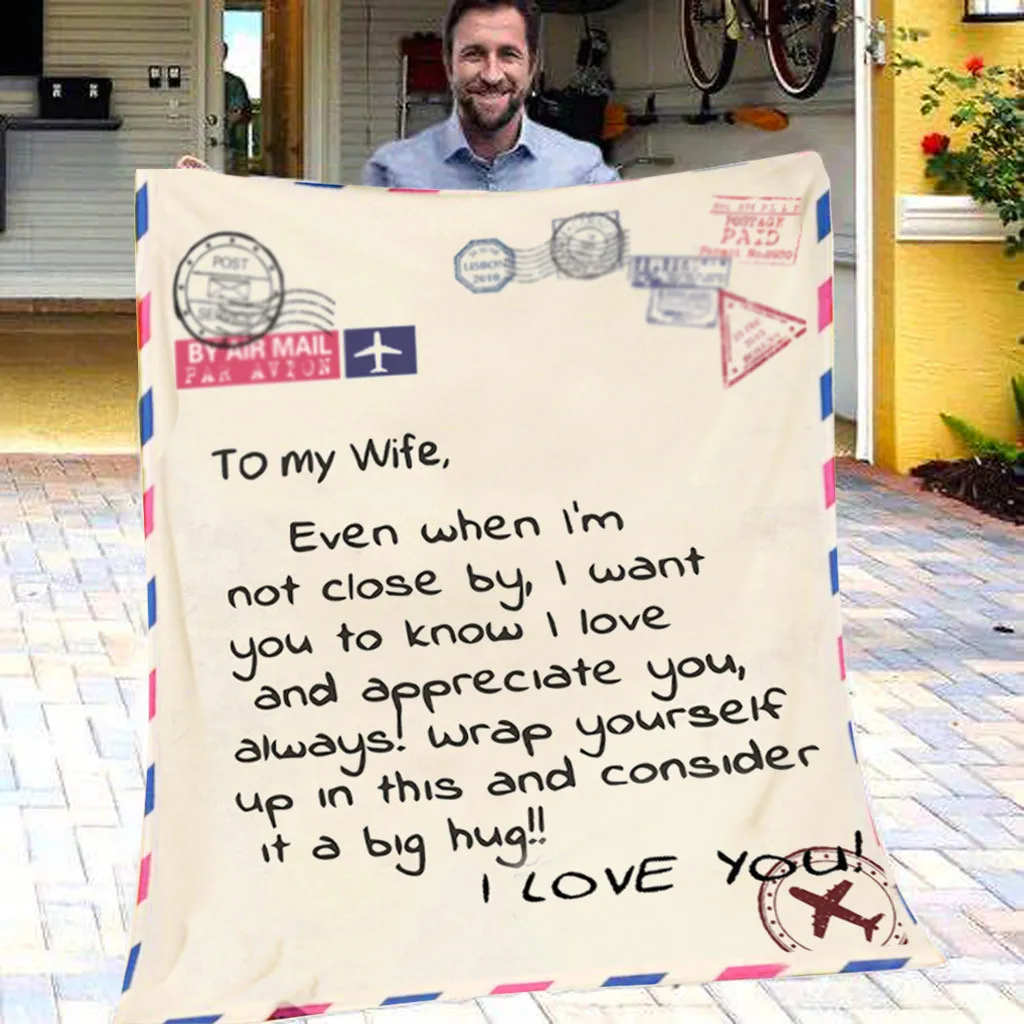 POST
LISBON
2010
POSTAGE
PAID
BY AIR MAIL
PAR AVION
To my Wife,
Even when I'm
not close by, I want
you to know I love
and appreciate you,
always! wrap yourself
up in this and consider
it a big hug!!
I LOVE YOU!